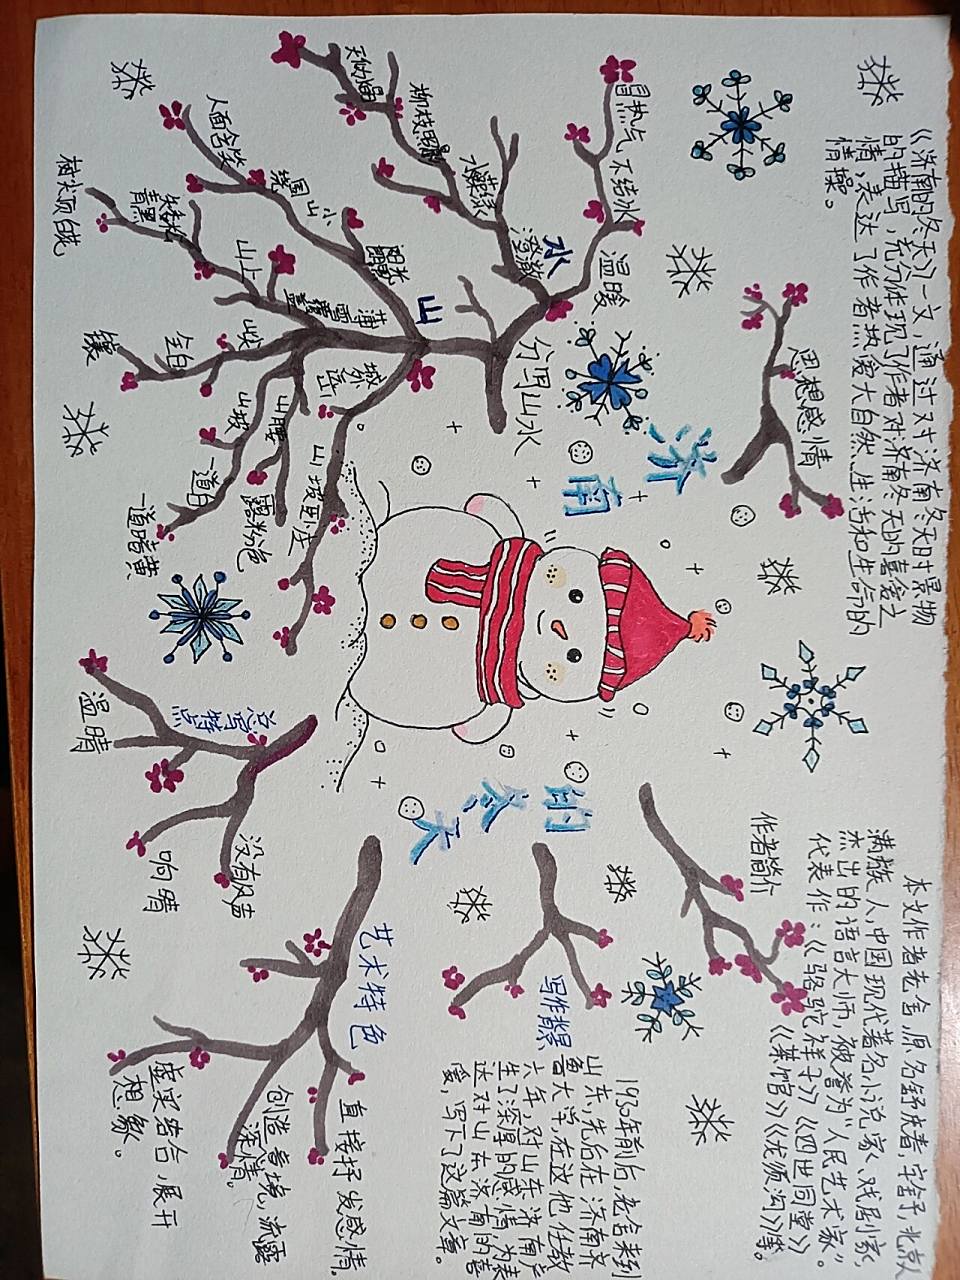 济南
的冬天
《济南的冬天》一文,通过对济南冬天时景物
的描写,充分体现了作者对济南冬天的喜爱之
情,表达了作者热爱大自然、生活和生命的
情操。
思想感情
本文作者老舍,原名舒庆春,字舍予,北京人
满族人,中国现代著名小说家、戏剧家,
杰出的语言大师,被誉为"人民艺术家"。
代表作:《骆驼祥子》《四世同堂》
《茶馆》《龙须沟》等。
作者简介
写作背景
1930年前后,老舍来到
山东,先后在济南齐
鲁大学,在这他任教
六年,对山东济南产
生了深厚的感情,为表
达对山东济南的喜
爱,写下了这篇文章。
分写山水
水
温暖
冒热气
不结冰
澄澈
水藻绿
天
山
阳光
小
山
围
绕
人面含笑
薄
雪
覆
盖
山上
矮松
青黑
树尖顶白花
山峻
全白
镶
山坡
一道白
一道暗黄
山腰
露粉色
城外
远山
山坡卧庄
总写特点
温晴
响晴
没有风声
艺术特色
直接抒发感情。
创造意境,流露
深情。
虚实结合,展开
想象。